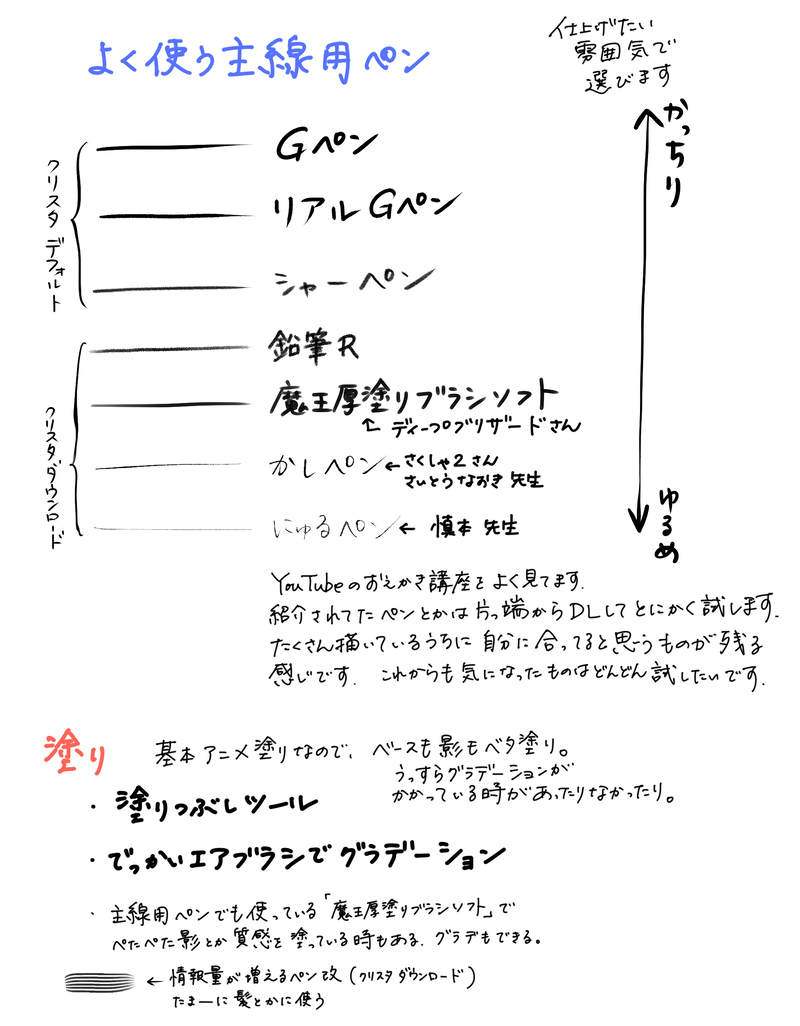 よく使う主線用ペン
仕上げたい
雰囲気で
選びます
かっちり
クリスタ デフォルト
Gペン
リアルGペン
シャーペン
クリスタダウンロード
鉛筆R
魔王厚塗りブラシソフト
ディープブリザードさん
かしペン←さくしゃ2さん
さいとうなおき先生
にゅるペン←慎本先生
ゆるめ
YouTubeのおえかき講座をよく見てます.
紹介されてたペンとかは片っ端からDLしてとにかく試します.
たくさん描いているうちに自分に合ってると思うものが残る
感じです. これからも気になったものはどんどん試したいです.
塗り
基本アニメ塗りなので、ベースも影もベタ塗り。
うっすらグラデーションが
かかっている時があったりなかったり。
・塗りつぶしツール
・でっかいエアブラシでグラデーション
・主線用ペンでも使っている「魔王厚塗りブラシソフト」で
ぺたぺた影とか質感を塗っている時もある. グラデもできる。
←情報量が増えるペン改(クリスタダウンロード)
たまーに髪とかに使う